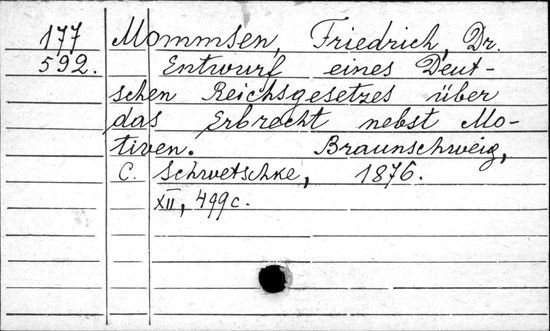 177 Mommsen, Friedrich, Dr.
592. Entwurf eines Deut-
schen Reichsgesetzes über
das Erbrecht nebst Mo-
tiven. Braunschweig,
C. Schwetschke, 1876.
XII, 499 c.